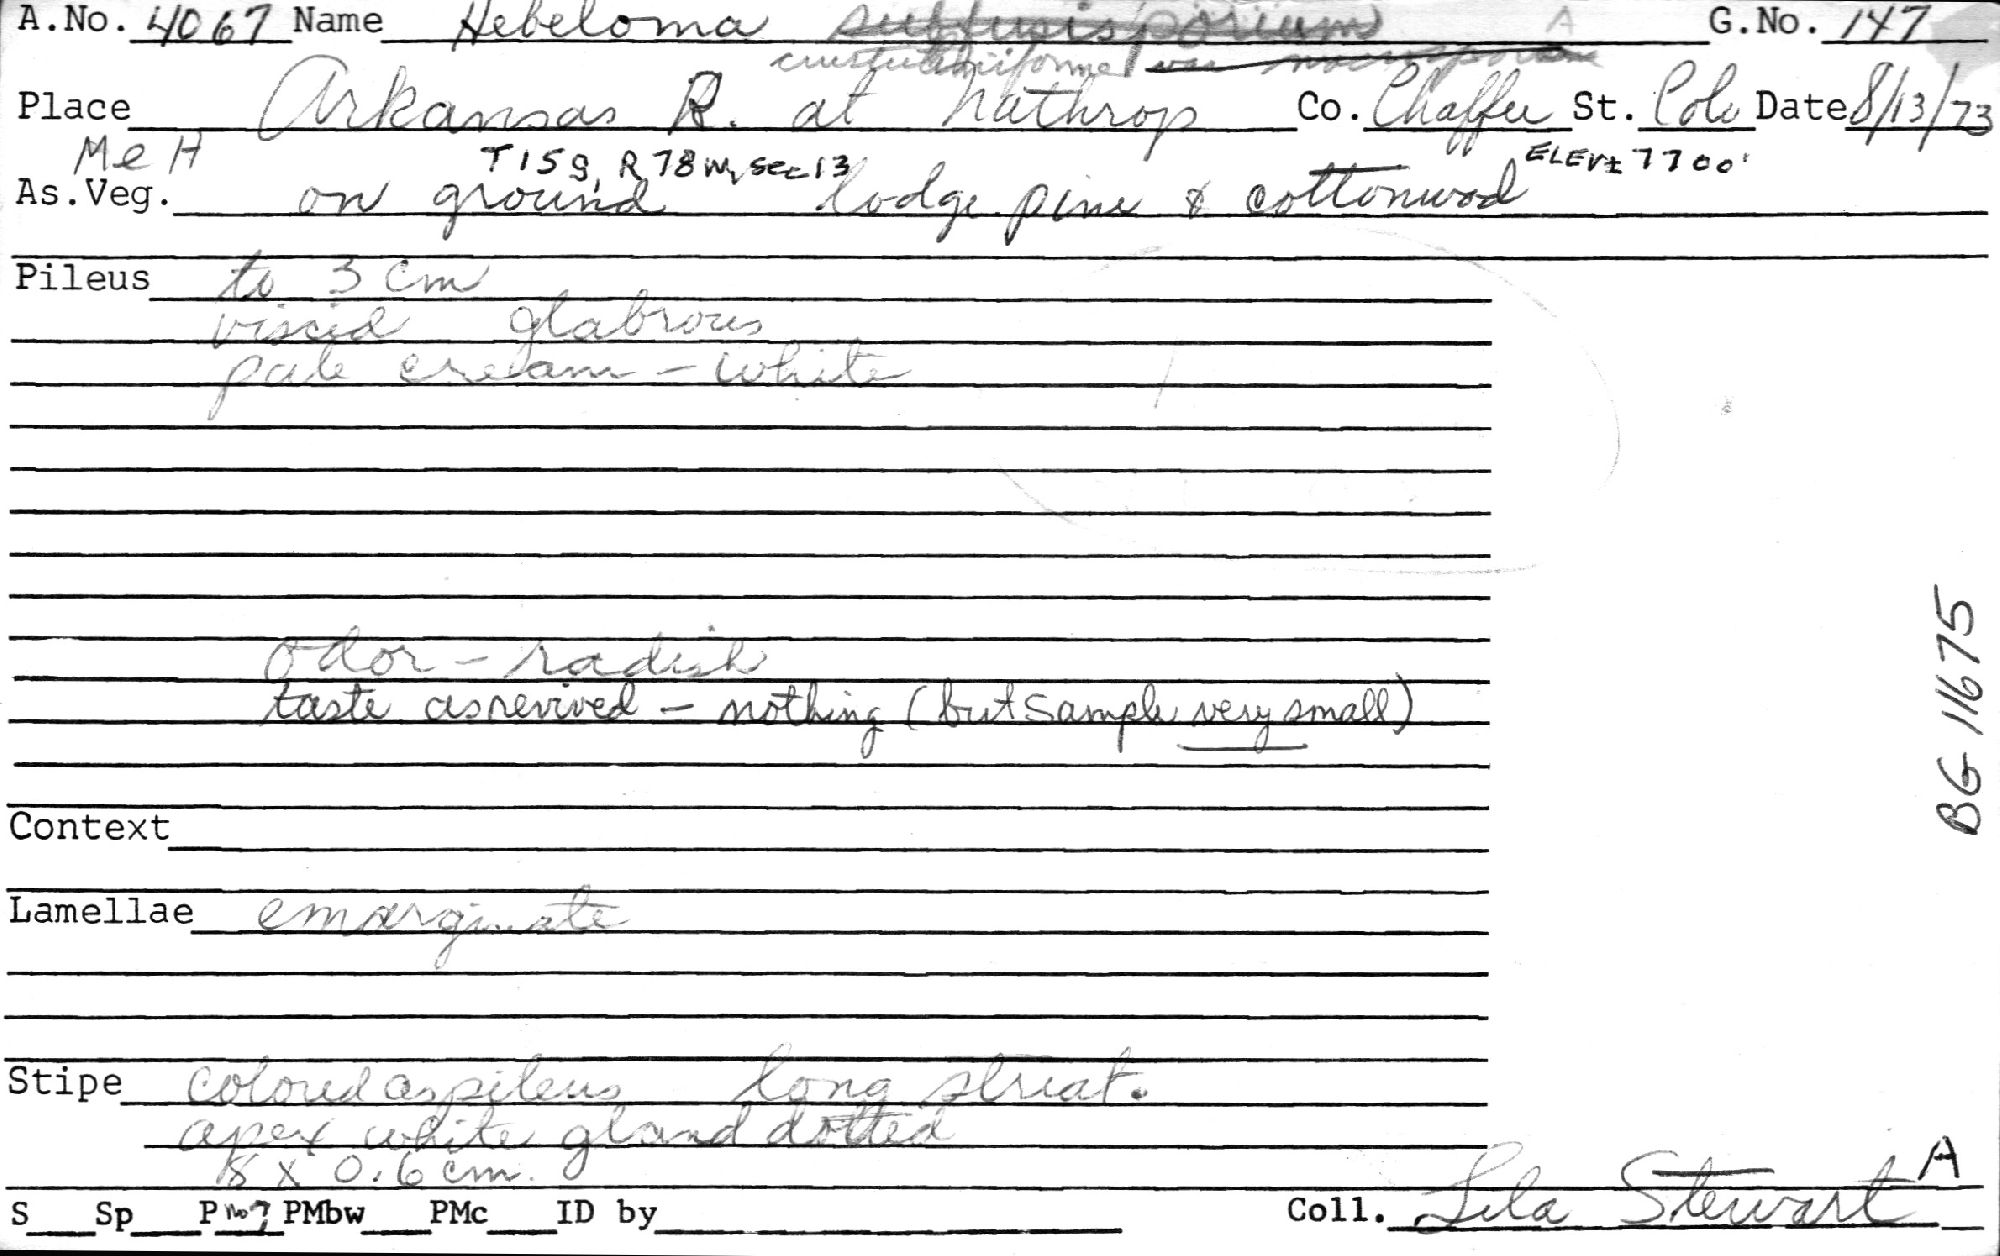 A.No. 4067 Name Hebeloma A G.No. 147
crustuliniforme var
Place Arkansas R. at Nathrop Co. Chaffee St. Colo Date 8/13/73
Me H T15S, R78W, sec 13 ELEV± 7700'
As.Veg. on ground lodge pine & cottonwood
Pileus to 3 cm
viscid glabrous
pale cream - white
odor - radish
taste as revived - nothing (but sample very small)
Context
Lamellae emarginate
Stipe colored as pileus long striat.
apex white gland dotted
8 x 0.6 cm.
A
S Sp P no? PMbw PMc ID by Coll. Lila Stewart
BG 11675